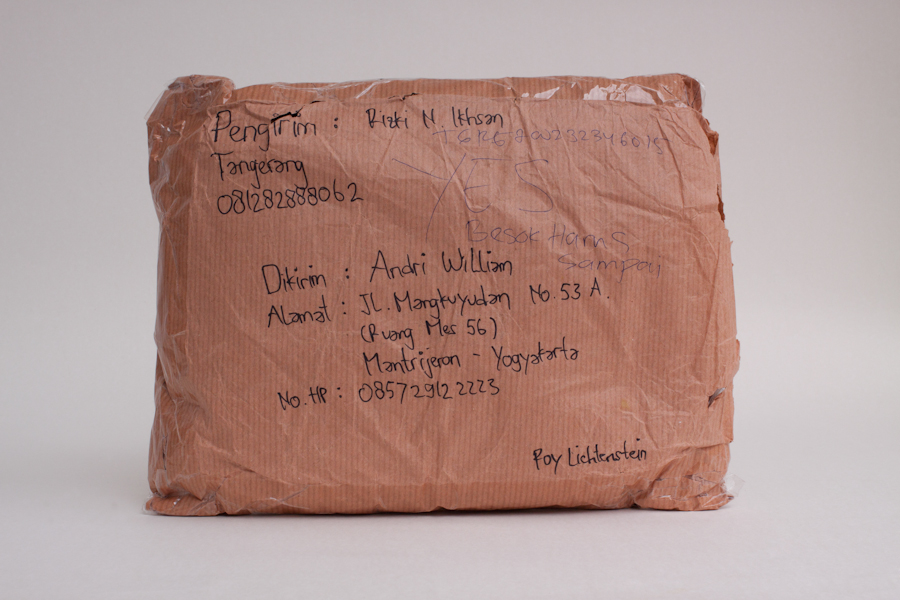 Pengirim : Rizki N. Ikhsan
Tangerang
081282888062
YES
Besok Harus
Sampai
Dikirim : Andri William
Alamat : JL. Mangkuyudan No. 53 A.
(Ruang Mes 56)
Mantrijeron - Yogyakarta
No. HP : 085729122223
Roy Lichtenstein